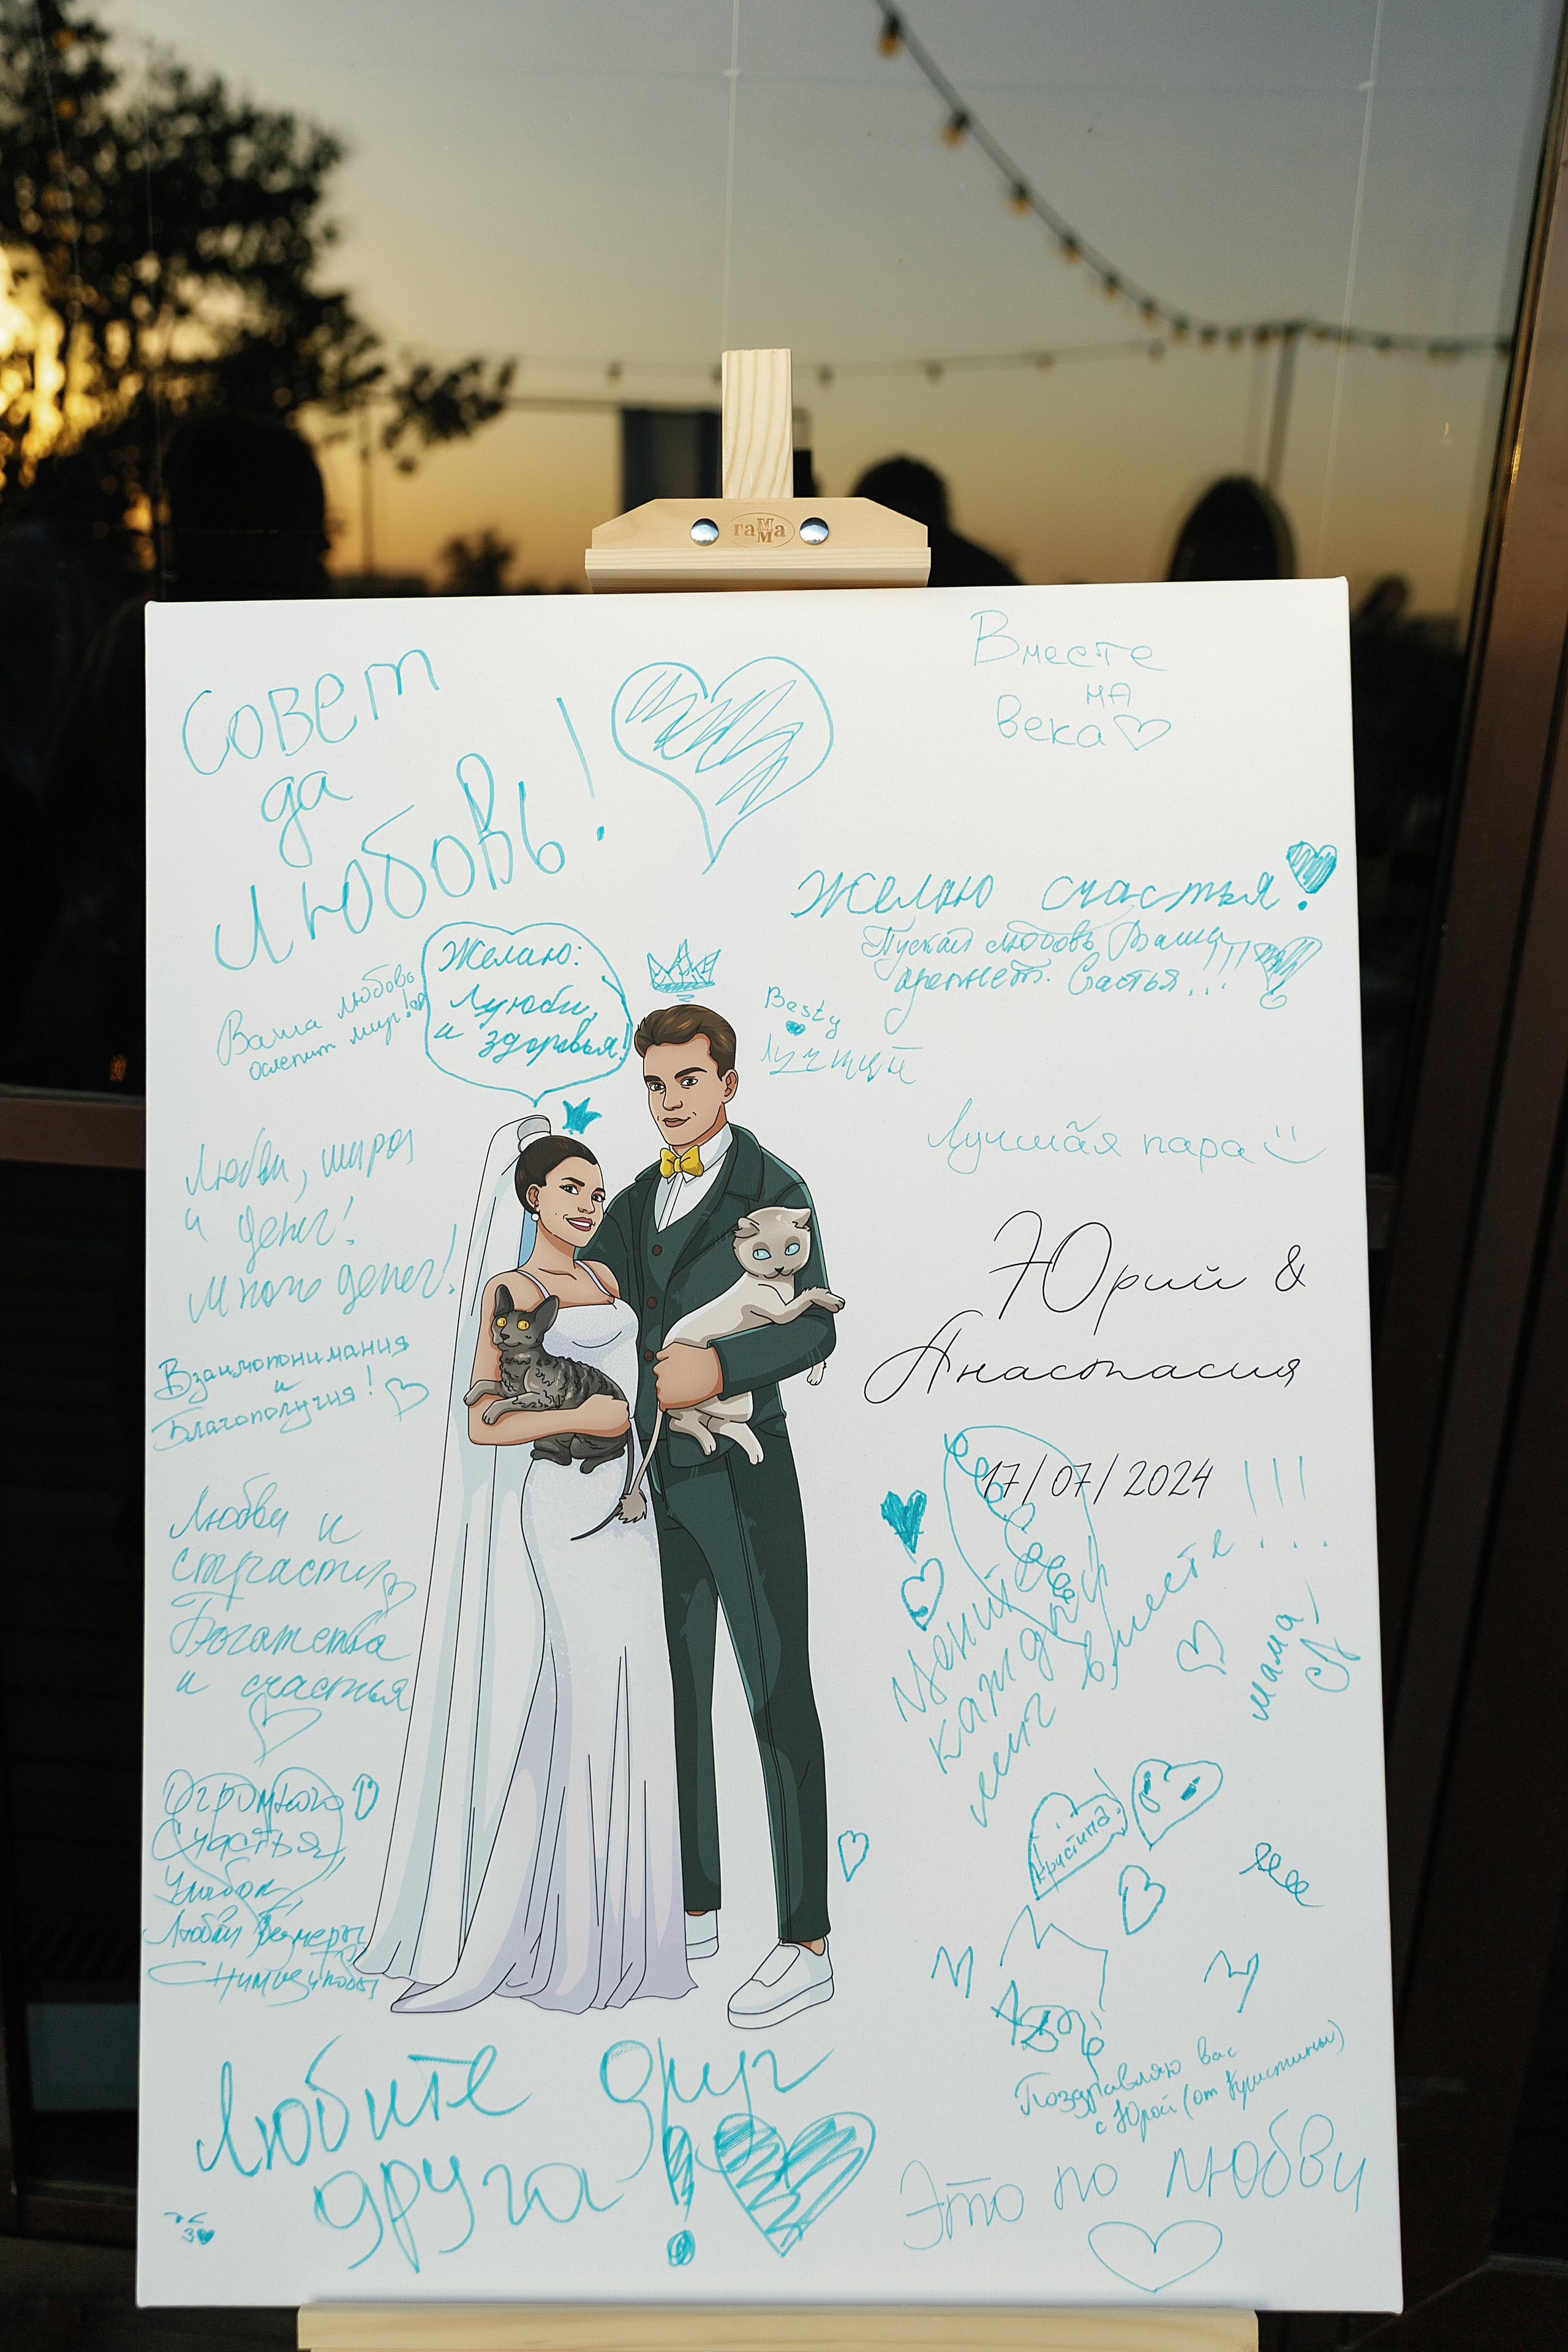 гамма
Совет
да
Любовь!
Вместе
на
века
Желаю счастья!
Пускай любовь Ваша
крепнет. Счастья!!!
Ваша любовь
ослепит мир!
Желаю:
Лујоби,
и здоровья!
Besty
Лучший
Любви, мира
и денег!
Много денег!
Лучшая пара
Юрий &
Анастасия
Взаимопонимания
и
Благополучия!
17/07/2024
Любви и
страсти
Богатства
и счастья
Цените
каждый
миг вместе!!!
мама
Огромного
Счастья,
Улыбок
Любви
Кристина
Поздравляю вас
с Юрой (от Кристины)
Любите друг
друга!
Это по любви